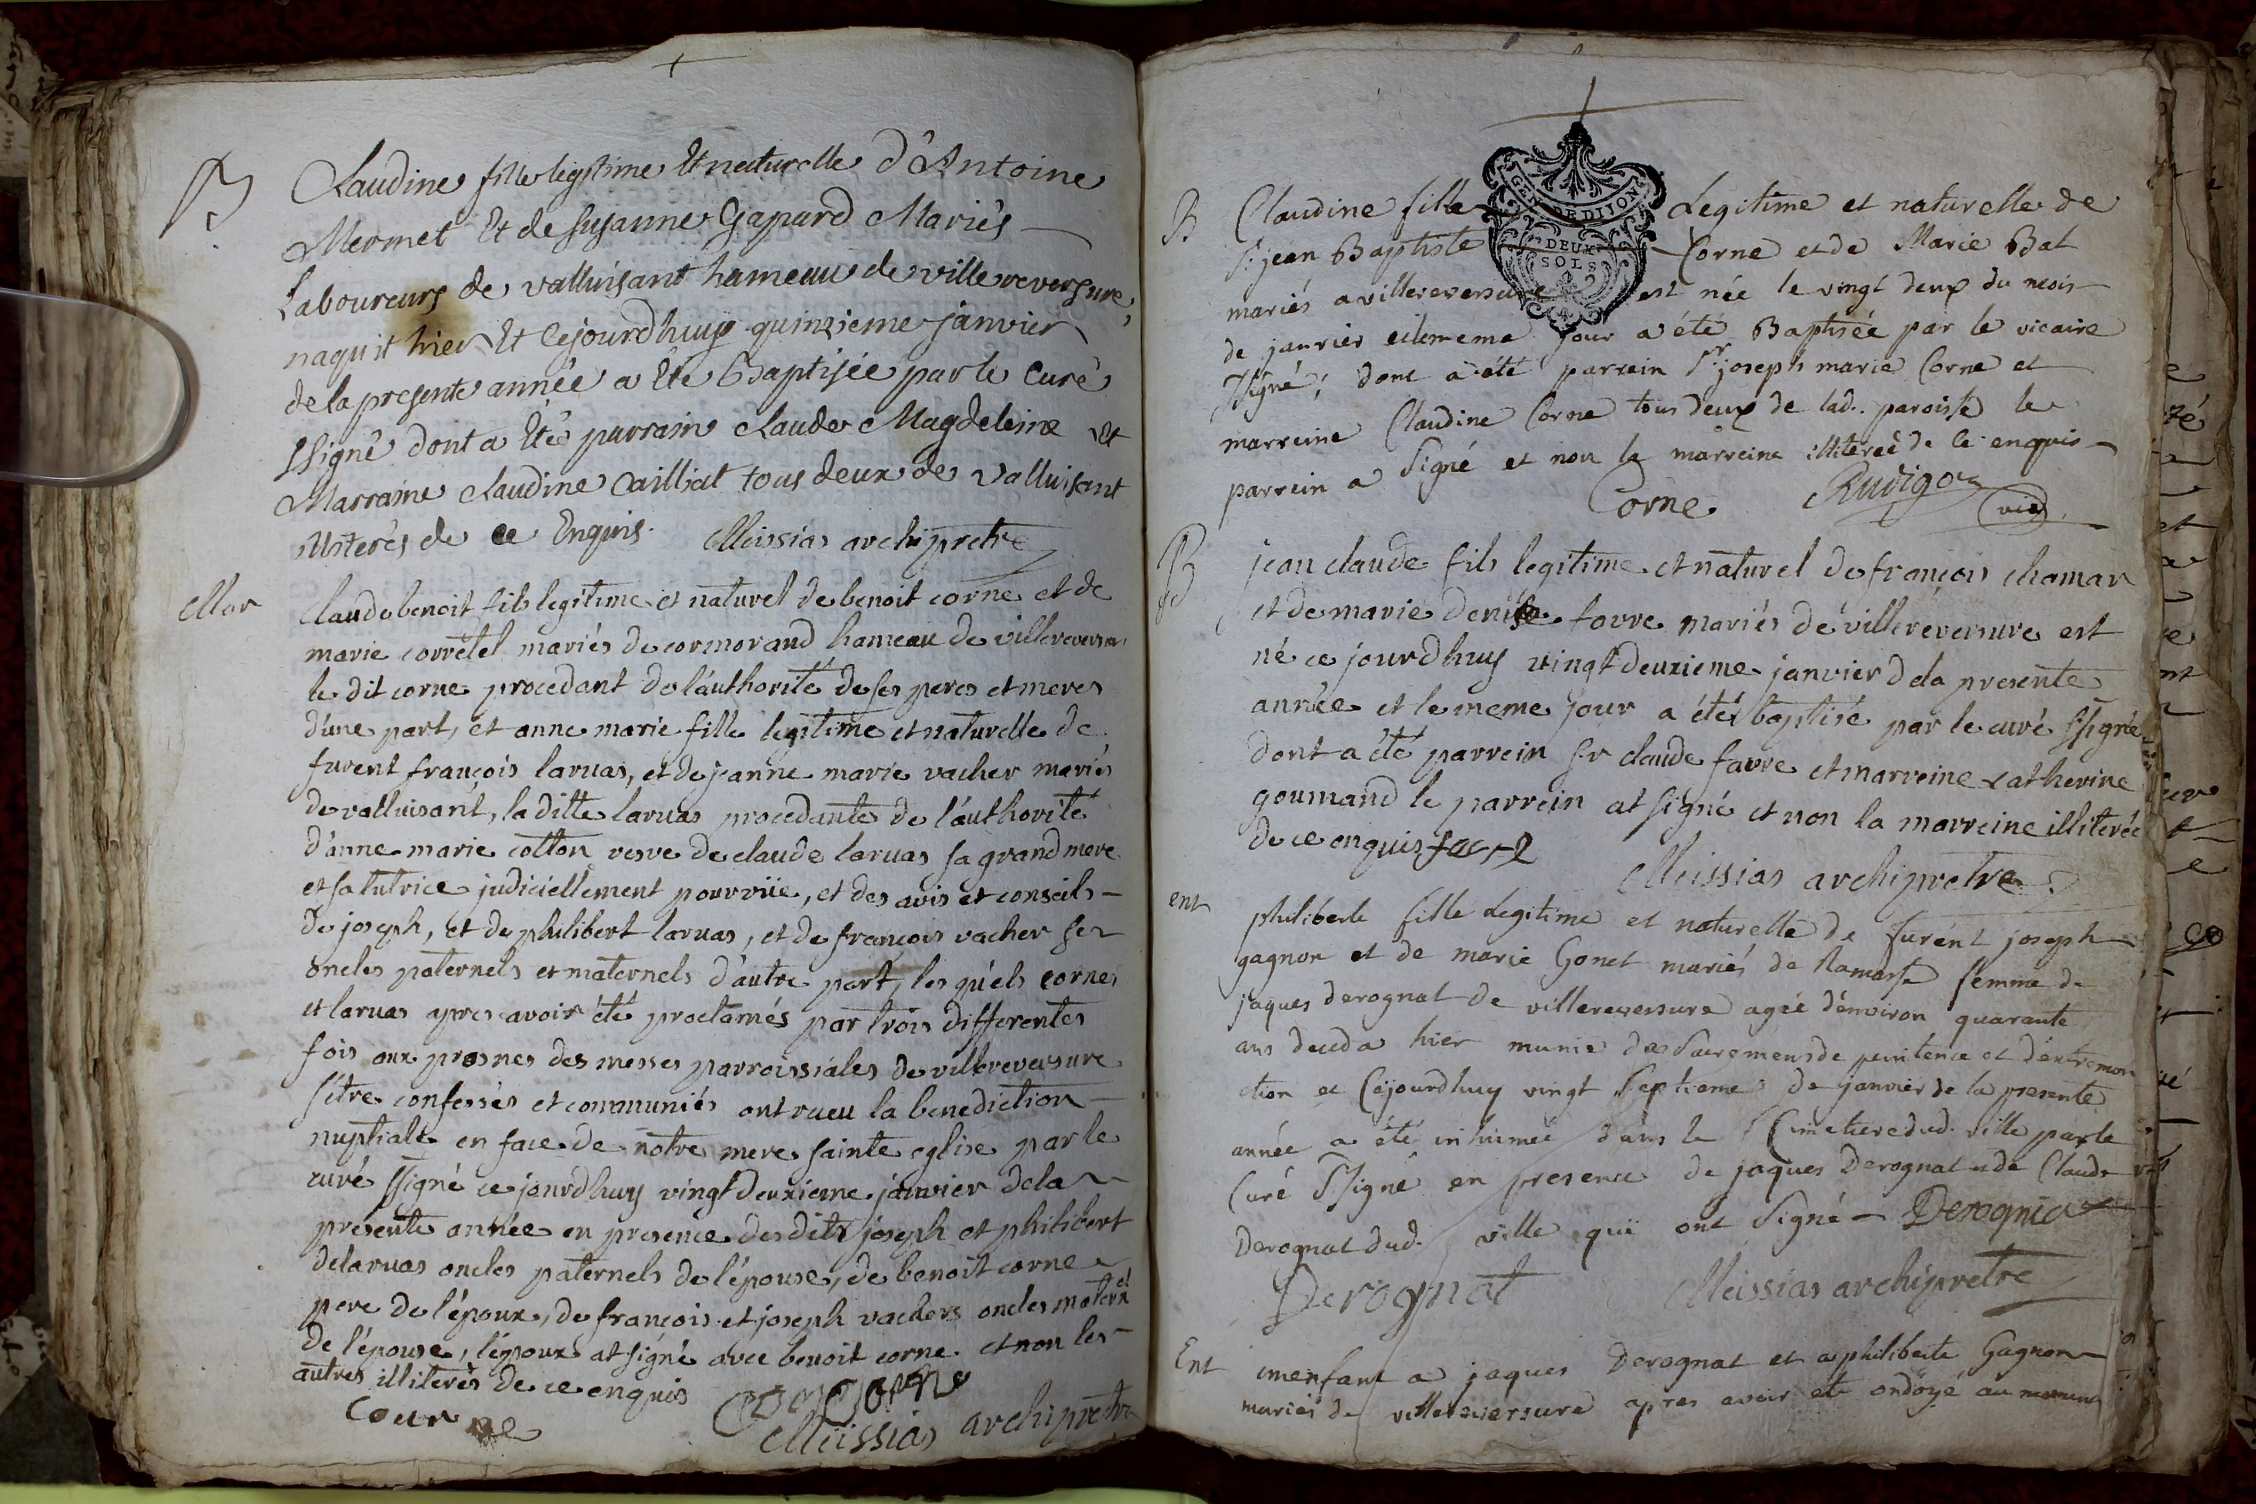 B
Claudine fille legitime Et naturelle d'Antoine
Mermet Et de Susanne Gapard Mariés
Laboureurs de valluisant hameau de villereversure,
naquit hier Et Cejourdhuy quinzieme janvier
de la presente année a Eté Baptisée par le Curé
Ssigné dont a Eté parrain Claude Magdeleine Et
Marraine Claudine Cailliat tous deux de Valluisant
illiterés de ce Enquis. Meissias archipretre
Mar
Claude benoit fils legitime et naturel de benoit corne et de
marie corretel mariés de cormorand hameau de villereversure
le dit corne procedant de l'authorité de ses peres et meres
d'une part, et anne marie fille legitime et naturelle de
furent françois laruas, et de jeanne marie vacher mariés
de valluisant, la ditte laruas procedante de l'authorité
d'anne marie cotton vesve de claude laruas sa grand mere
et sa tutrice judiciellement pourvüe, et des avis et conseils
de joseph, et de philibert laruas, et de françois vacher ses
oncles paternels et maternels d'autre part, les quels corne
et laruas apres avoir été proclamés par trois differentes
fois aux prosnes des messes parroissiales de villereversure
s'etre confessés et communiés ont receu la benediction
nuptiale en face de notre mere sainte eglise par le
curé ssigné ce jourdhuy vingt deuxieme janvier de la
presente année en presence des dits joseph et philibert
delaruas oncles paternels de l'épouse, de benoit corne
pere de l'époux, de françois et joseph vachers oncles maternels
de l'épouse, l'époux at signé avec benoit corne et non les
autres illiterés de ce enquis
Meissias archipretre
B
Claudine fille Legitime et naturelle de
GEN DE DIJON
DEUX
SOLS
Sr jean Baptiste Corne et de Marie Bat
mariés a villereversure est née le vingt deux du mois
de janvier et le meme jour a été Baptisée par le vicaire
Ssigné; dont a été parrein Sr joseph marie Corne et
marreine Claudine Corne tous deux de lad. paroisse le
parrein a signé et non la marreine illiterée de ce enquis
Corne
B
jean claude fils legitime et naturel de françois chamar
et de marie denise favre mariés de villereversure est
né ce jourdhuy vingt deuxieme janvier de la presente
année et le meme jour a été baptisé par le curé ssigné
dont a été parrein sr claude favre et marreine catherine
goumand le parrein at signé et non la marreine illiterée
de ce enquis
Meissias archipretre
ent
philiberte fille legitime et naturelle de furent joseph
gagnon et de marie Gonet mariés de Ramasse femme de
jaques derognat de villereversure agée d'environ quarante
ans deceda hier munie des sacremens de penitence et d'extremon
ction et Cejourdhuy vingt septieme de janvier de la presente
année a été inhumée dans le Cimetiere dud. ville par le
Curé Ssigné en presence de jaques Derognat et de Claude
Derognat dud. ville qui ont signé
Derognat
Meissias archipretre
Ent
un enfant a jaques Derognat et a philiberte Gagnon
mariés de villereversure apres avoir eté ondoyé au moment